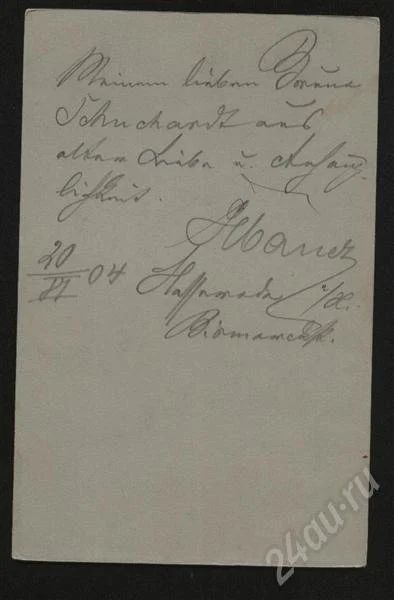 Meinem lieben Bruno
Schuchardt aus
alter Liebe u. Anhäng-
lichkeit.
20
VI 04
Hasserode i/H.
Bismarckstr.
24au.ru